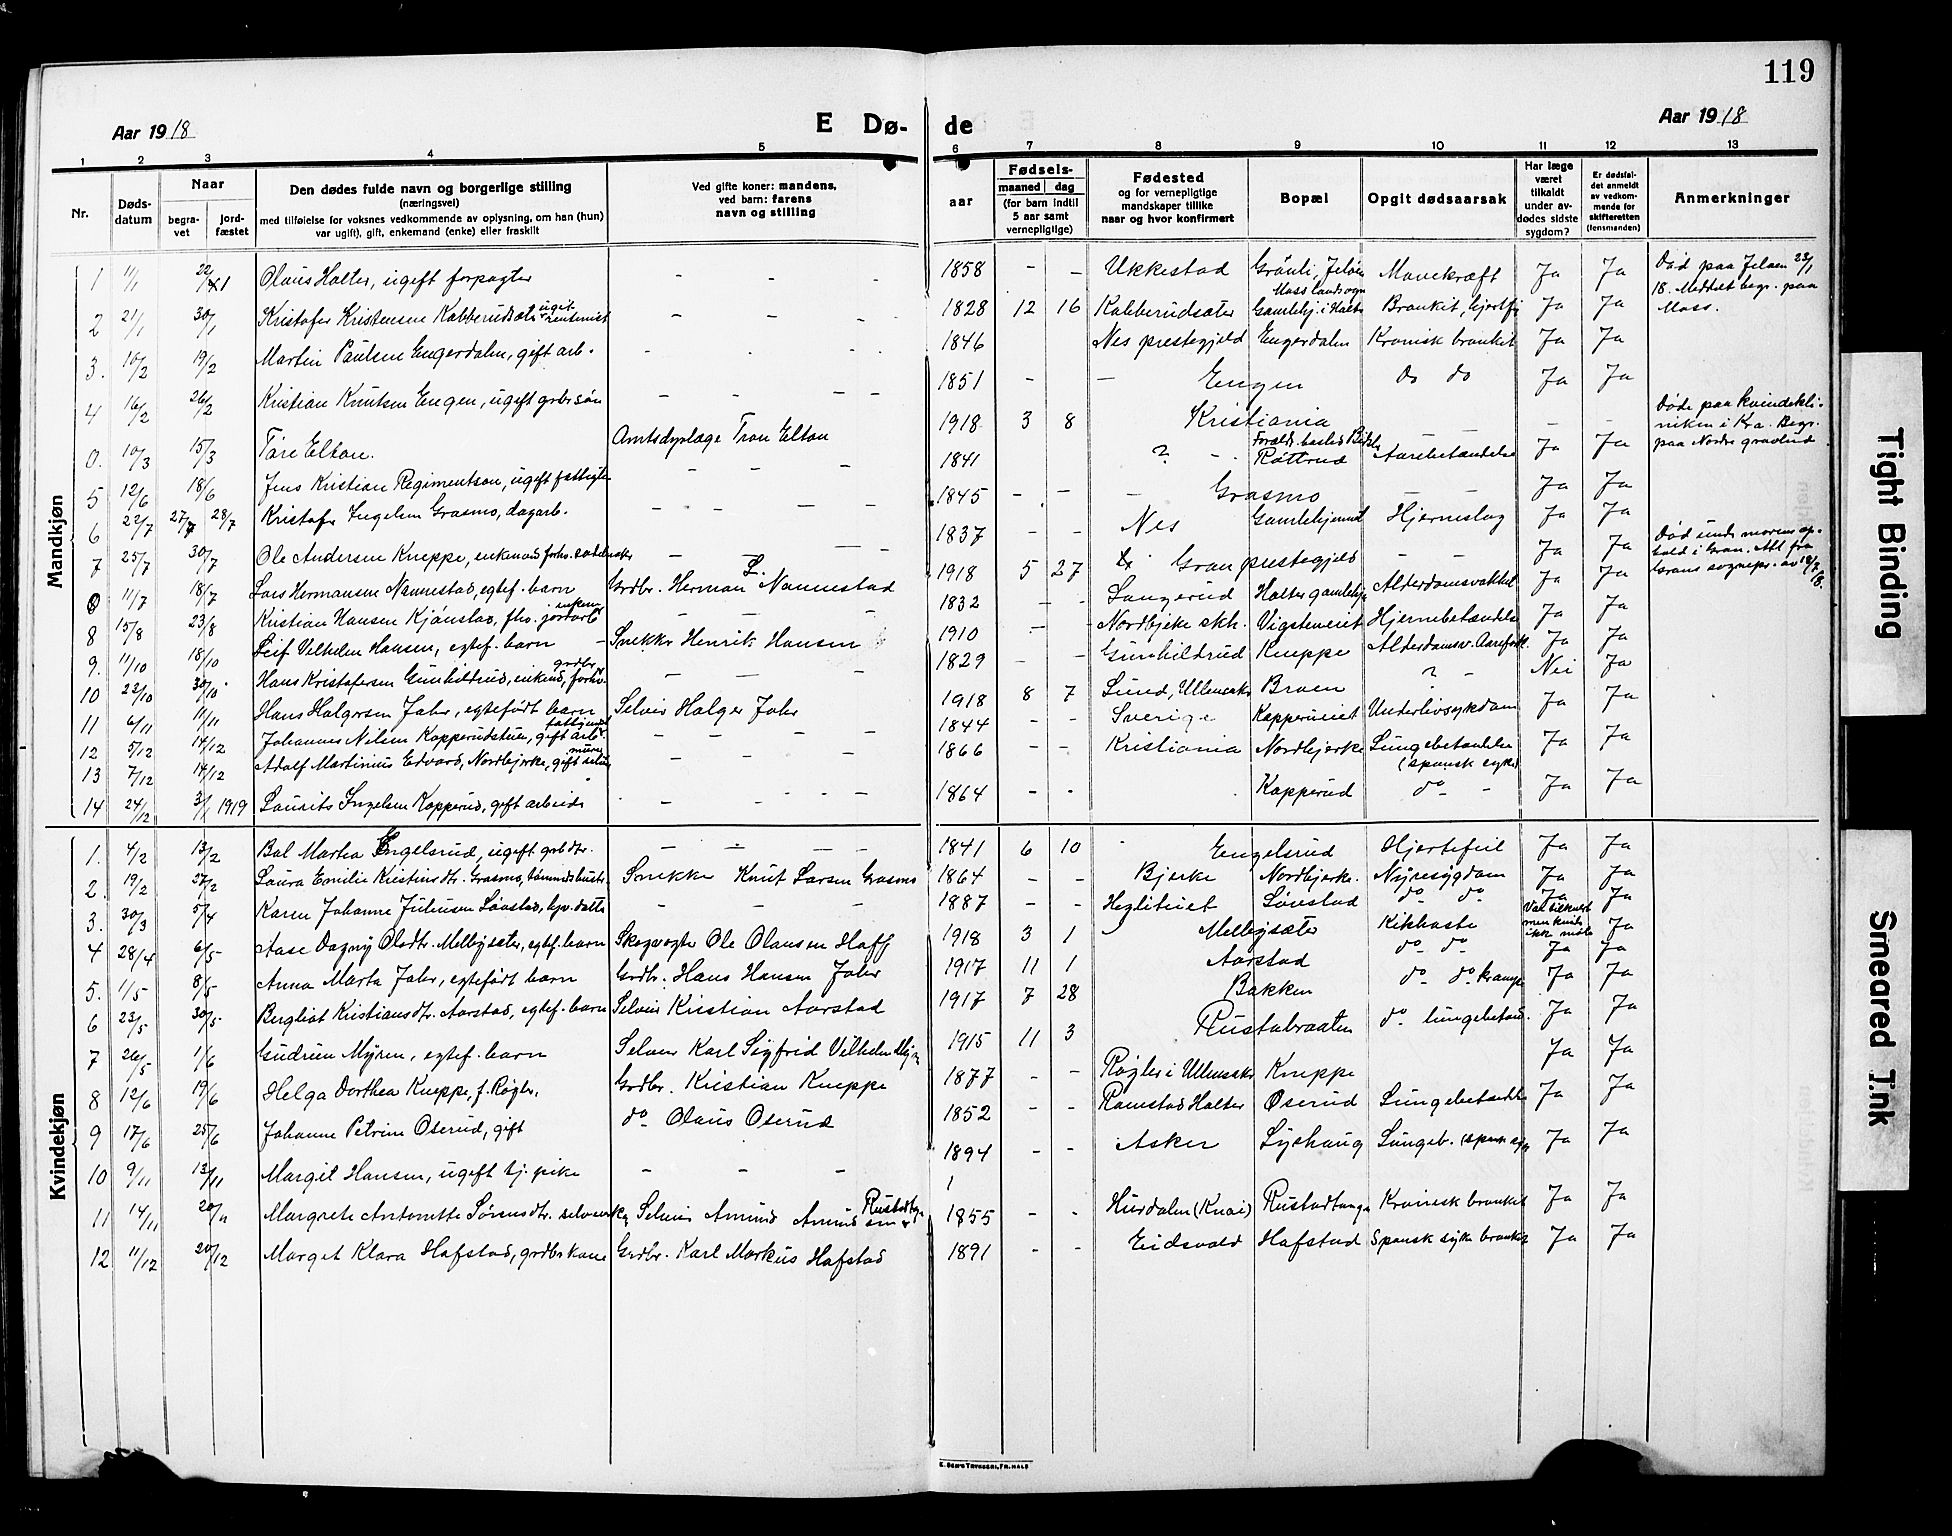 119
Aar 1918 E Dø- de Aar 1918
1 2 3 4 5 6 7 8 9 10 11 12 13
Nr. Døds-datum Naar begra-vet jord-fæstet Den dødes fulde navn og borgerlige stilling (næringsvei) med tilføielse for voksnes vedkommende av oplysning, om han (hun) var ugift), gift, enkemand (enke) eller fraskilt Ved gifte koner: mandens, ved barn: farens navn og stilling
aar Fødsels- maaned dag (for barn indtil 5 aar samt vernepligtige) Fødested og for vernepligtige mandskaper tillike naar og hvor konfirmert Bopæl Opgit dødsaarsak Har læge været tilkaldt under av-dødes sidste sygdom? Er dødsfal-det anmeldt av vedkom-mende for skifteretten (lensmanden) Anmerkninger
Mandkjøn
1 11/1 22/1 Olaus Holter, ugift forpagter - - - 1858 - - Ukkestad Grönli, Jeløen Moss landsogn Mavekræft Ja Ja Død paa Jeløen 23/1 18. Meddelt begr. paa Moss.
2 21/1 30/1 Kristofer Kristensen Kabberudsæter ugift rentenist - - - 1828 12 16 Kabberudsæter Gamlehj. i Holter Bronkit, hjertfe Ja Ja
3. 10/2 19/2 Martin Paulsen Engerdalen, gift arb. - - - 1846 Nes prestegjeld Engerdalen Kronisk bronkit Ja Ja
4 16/2 26/2 Kristian Knutsen Engen, ugift grbr søn - - - 1851 - - Engen do do Ja Ja
0. 10/3 15/3 Tore Elton. Amtsdyrlæge Tron Elton 1918 3 8 Kristiania Foreld. bosted Bjerke - - Døde paa kvindekli-niken i Kra. Begr. paa Nordre gravlund
5 12/6 18/6 Jens Kristian Regimentson, ugift fattiglem - - - 1841 ? - Røttrud Aarebetændelse Ja Ja
6 22/7 27/7 28/7 Kristofer Ingelsen Grasmo, dagarb. - - - 1845 - - - Grasmo - - Ja Ja
7 25/7 30/7 Ole Andersen Kneppe, enkemand forhv. - - - 1837 - - Nes Gamlehjemmet Hjerneslag Ja Ja
0 11/7 18/7 Lars Hermansen Nannestad, egtef. barn Grdbr. Herman L. Nannestad 1918 5 27 i Gran prestegjeld - - Ja Ja Død under morens op-hold i Gran. Att. fra Grans sognepr. av 18/7 18.
8 15/8 23/8 Kristian Hansen Kjønstad, fhv. jordarb enkem. - - 1832 - - Sangerud Holter gamlehje Alderdomsvakhet Ja Ja
9. 11/10 18/10 Leif Vilhelm Hansen, egtef. barn - Snekker Henrik Hansen 1910 - - Nordbjerke skh. Vigsteneiet Hjernebetændelse Ja Ja
10 23/10 30/10 Hans Kristofersen Gunhildrud, enkem, forhv. grdbr. - - - 1829 - - Gunhildrud Kneppe Alderdomsv. Aarefork. Ja Ja
11 6/11 11/11 Hans Holgersen Jahr, egtefødt barn Selveier Holger Jahr 1918 8 7 Sund, Ullensaker Broen ? - Nei Ja
12 5/12 14/12 Johannes Nilsen Kopperudstuen, gift arb. - - - 1844 - - Sverige Kopperueiet Underlivsykdom Ja Ja
13 7/12 14/12 Adolf Martinius Edvard, Nordbjerke, gift murer - - 1866 - - Kristiania Nordbjerke Lungebetændelse (spansk syke) Ja Ja
14 24/12 3/1 1919 Laurits Ingelsen Kopperud, gift arbeider - - - - 1864 - - Kopperud do - - Ja Ja
Kvindekjøn
1. 4/2 13/2 Bol Martea Engelsrud, ugift grbdtr. - - - 1841 6 10 Engelsrud Hjertefeil Ja Ja
2. 19/2 27/2 Laura Emilie Kristinsdtr. Grasmo, tømmdshustr. Snekker Knut Larsen Grasmo 1864 - - Bjerke Nordbjerke. Nyresygdom Ja Ja
3. 30/3 5/4 Karen Johanne Juliusen Lönstad, - - - 1887 - - Hegliteiet Sörestad do do Ja Ja
4 28/4 6/5 Aase Dagny Olsdtr. Mellbysæter, egtef. barn Skogvogter Ole Olausen Hoff 1918 3 1 Mellbysæter Kikhoste Var tilkaldt men kunde ikke møte Ja
5. 1/5 8/5 Anna Marta Jahr, egtefødt barn Grdbr. Hans Hansen Jahr 1917 11 1 Aarstad do do Ja Ja
6 23/5 30/5 Bergliot Kristiansdtr. Aarstad, egtef. barn Selveier Kristian Aarstad 1917 7 28 Bakken do do krampe Ja Ja
7 26/5 1/6 Gudrun Myren, egtef. barn Selveier Karl Sigfrid Vilhelm Myren 1915 11 3 Rustabraaten do lungebetænd. Ja Ja
8 12/6 19/6 Helga Dorthea Kneppe, f. Røgler, Grdbr. Kristian Kneppe 1877 - - Røgler i Ullensaker Kneppe Ja Ja
9 17/6 25/6 Johanne Petrine Oserud, gift do Olaus Oserud 1852 - - Ramstad Holter Øserud Lungebetændelse Ja Ja
10 9/11 13/11 Margit Hansen, ugift tj. pike - - - 1894 - - Asker Lyshaug Lungeb. (spansk syke Ja Ja
11 14/11 20/11 Margrete Antonette Sørensdtr. Selveier Amund Amundsen Rustadtangen 1855 - - Hurdalen (Knai) Rustadtangen Kronisk bronkit Ja Ja
12 11/12 20/12 Marget Klara Hafstad, grdbrkone Grdbr. Karl Markus Hafstad 1891 - - Eidsvold Hafstad Spansk syke bronkit Ja Ja
E. SEM'S TRYKKERI, FR.HALD
Tight Binding
Smeared Ink